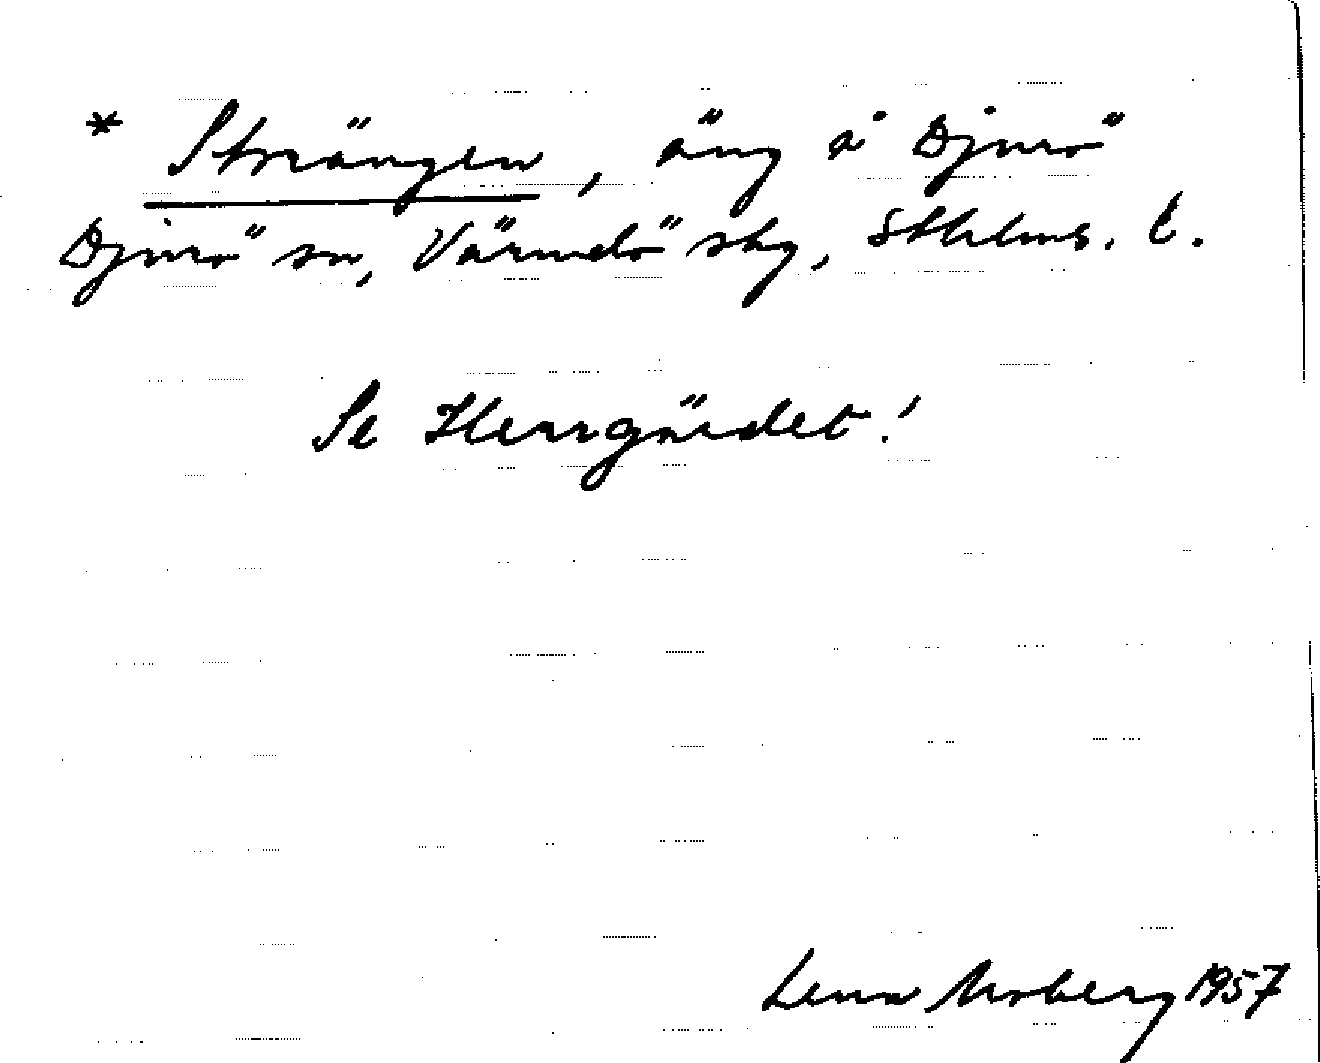 * Storängen, äng å Djurö
Djurö sn, Värmdö skg, Sthlms. l.
Se Herrgärdet!
Lena Moberg 1957